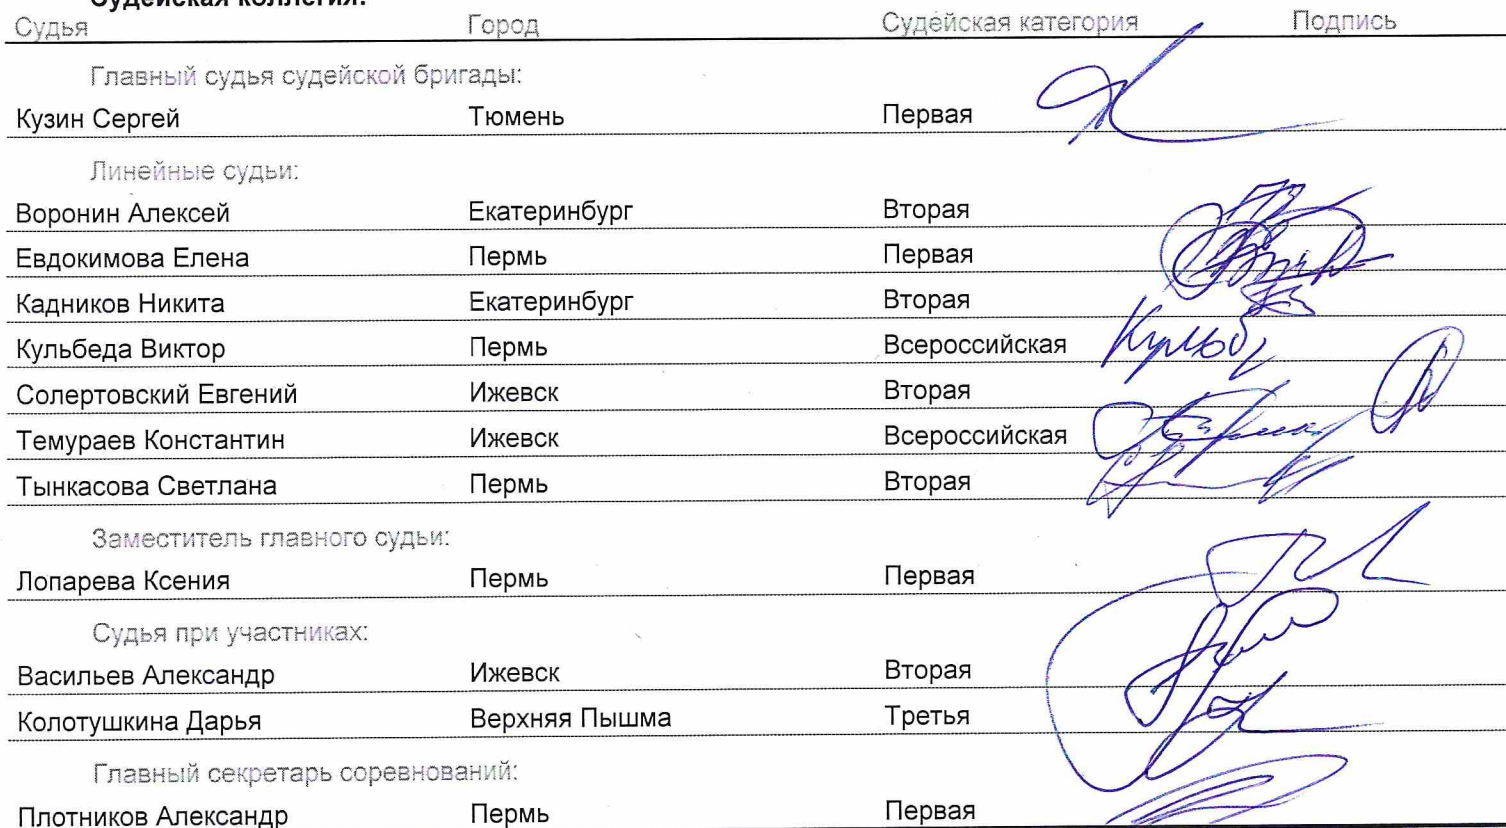 Судейская коллегия:
Судья Город Судейская категория Подпись
Главный судья судейской бригады:
Кузин Сергей Тюмень Первая
Линейные судьи:
Воронин Алексей Екатеринбург Вторая
Евдокимова Елена Пермь Первая
Кадников Никита Екатеринбург Вторая
Кульбеда Виктор Пермь Всероссийская
Солертовский Евгений Ижевск Вторая
Темураев Константин Ижевск Всероссийская
Тынкасова Светлана Пермь Вторая
Заместитель главного судьи:
Лопарева Ксения Пермь Первая
Судья при участниках:
Васильев Александр Ижевск Вторая
Колотушкина Дарья Верхняя Пышма Третья
Главный секретарь соревнований:
Плотников Александр Пермь Первая